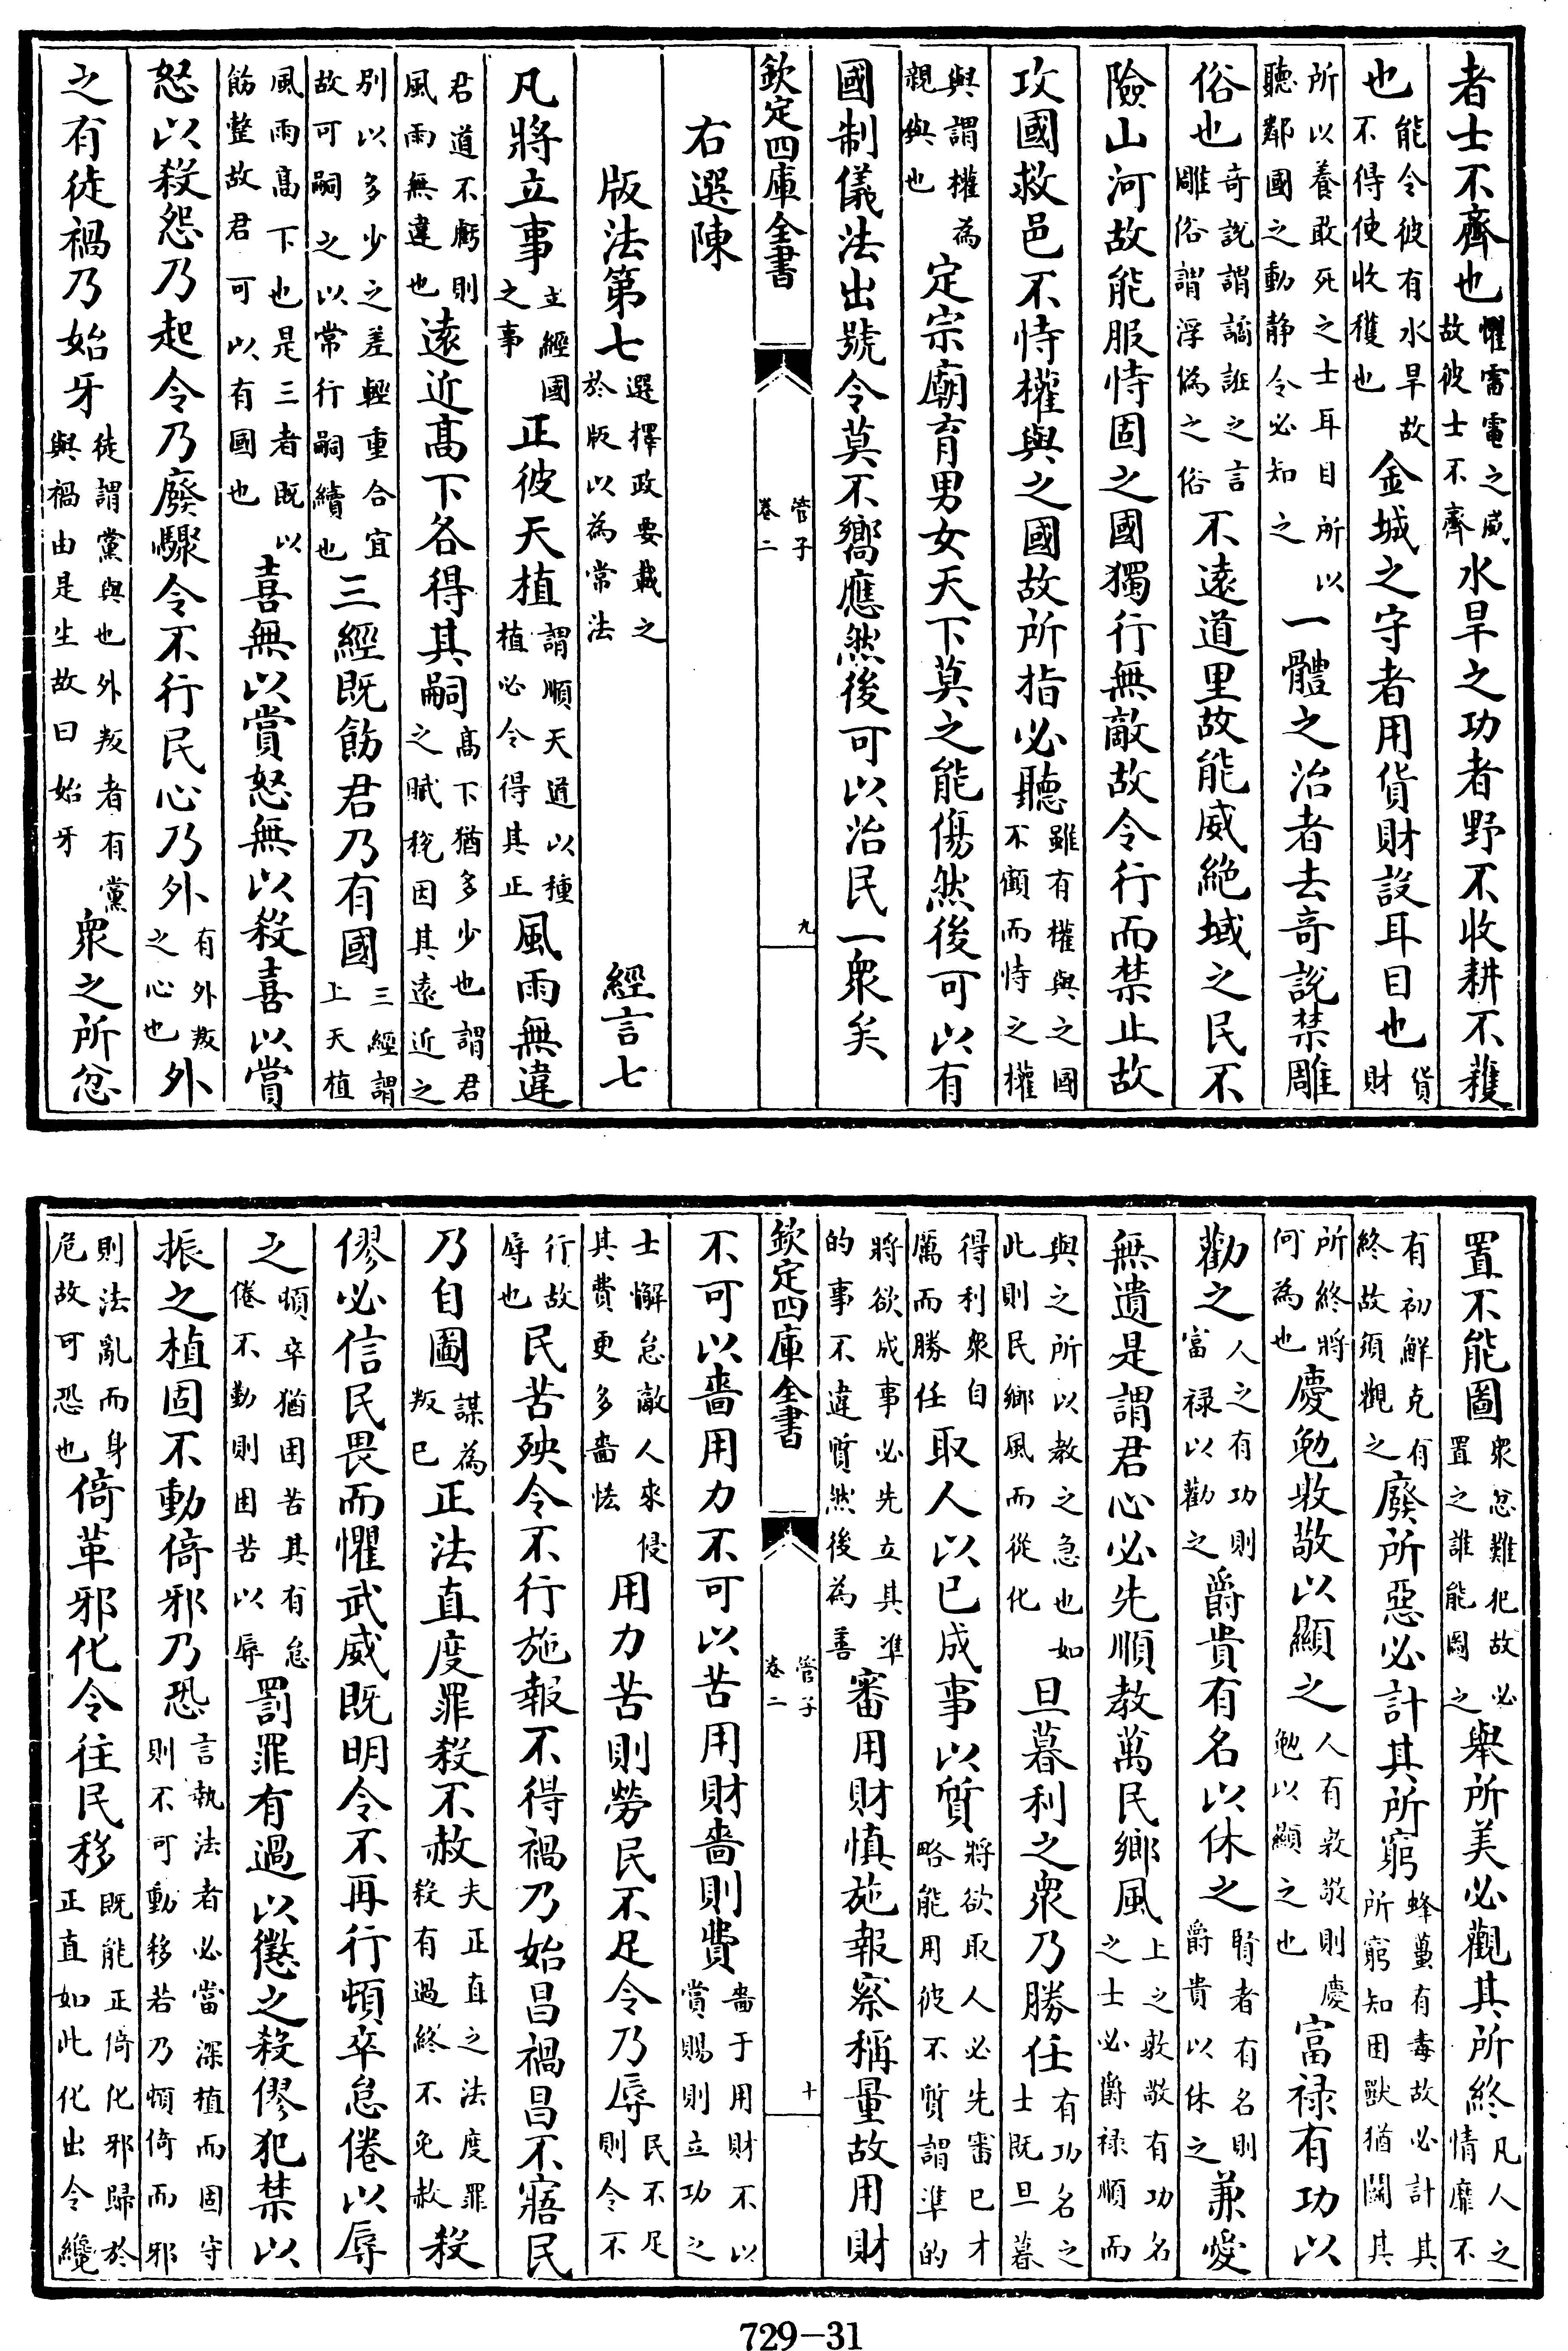 者士不齊也懼雷電之威故彼士不齊水旱之功者野不收耕不穫
也能令彼有水旱故不得使收獲也金城之守者用貨財設耳目也貨財
所以養敢死之士耳目所以聽鄰國之動静令必知之一體之治者去奇說禁雕
俗也奇説謂譎誑之言雕俗謂浮偽之俗不遠道里故能威絶域之民不
險山河故能服恃固之國獨行無敵故令行而禁止故
攻國救邑不恃權與之國故所指必聽雖有權與之國不顧而恃之權
與謂權為親與也定宗廟育男女天下莫之能傷然後可以有
國制儀法出號令莫不嚮應然後可以治民一衆矣
欽定四庫全書 管子卷二 九
右選陳
版法第七選擇政要載之於版以為常法 經言七
凡將立事立經國之事正彼天植謂順天道以種植必令得其正風雨無違
君道不虧則風雨無違也遠近髙下各得其嗣髙下猶多少也謂君之賦稅因其遠近之
别以多少之差輕重合宜故可嗣之以常行嗣續也三經既飭君乃有國三經謂上天植
風雨髙下也是三者既以飭整故君可以有國也喜無以賞怒無以殺喜以賞
怒以殺怨乃起令乃廢驟令不行民心乃外有外叛之心也外
之有徒禍乃始牙徒謂黨與也外叛者有黨與禍由是生故曰始牙衆之所忿
置不能圖衆忿難犯故必置之誰能圖之舉所美必觀其所終凡人之情靡不
有初鮮克有終故須觀之廢所惡必計其所窮蜂蠆有毒故必計其所窮知困獸猶鬭其
所終將何為也慶勉敦敬以顯之人有敦敬則慶勉以顯之也富禄有功以
勸之人之有功則富禄以勸之爵貴有名以休之賢者有名則爵貴以休之兼愛
無遺是謂君心必先順教萬民鄉風上之敦敬有功名之士必爵禄順而
與之所以教之急也如此則民鄉風而從化旦暮利之衆乃勝任有功名之士既旦暮
得利衆自厲而勝任取人以已成事以質將欲取人必先審已才略能用彼不質謂準的
將欲成事必先立其準的事不違質然後為善審用財慎施報察稱量故用財
欽定四庫全書 管子卷二 十
不可以嗇用力不可以苦用財嗇則費嗇于用財不以賞賜則立功之
士懈怠敵人來侵其費更多嗇怯用力苦則勞民不足令乃辱民不足則令不
行故辱也民苦殃令不行施報不得禍乃始昌禍昌不寤民
乃自圖謀為叛已正法直度罪殺不赦夫正直之法度罪殺有過終不免赦殺
僇必信民畏而懼武威既明令不再行頓卒怠倦以辱
之頓卒猶困苦其有怠倦不勤則困苦以辱罰罪有過以懲之殺僇犯禁以
振之植固不動倚邪乃恐言執法者必當深植而固守則不可動移若乃頓倚而邪
則法亂而身危故可恐也倚革邪化令往民移既能正倚化邪歸於正直如此化出令纔
729-31